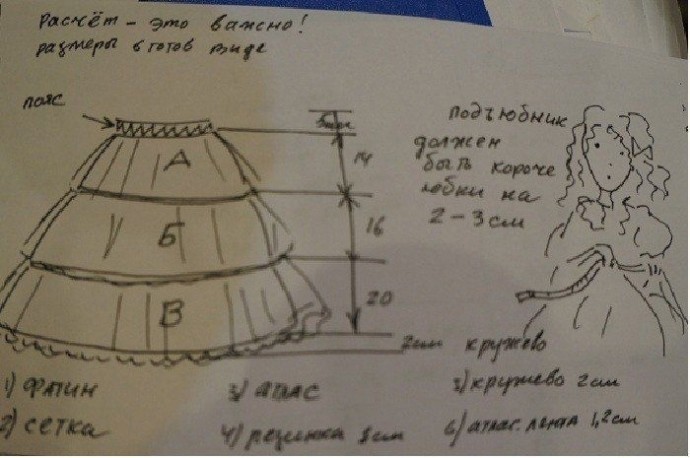 Расчёт - это важно!
размеры в готов виде
пояс
А
14
Б
16
В
20
подъюбник
должен
быть короче
юбки на
2-3 см
2см кружево
1) фатин
2) сетка
3) атлас
4) резинка
5) кружево 2см
6) атлас. лента 1,2см